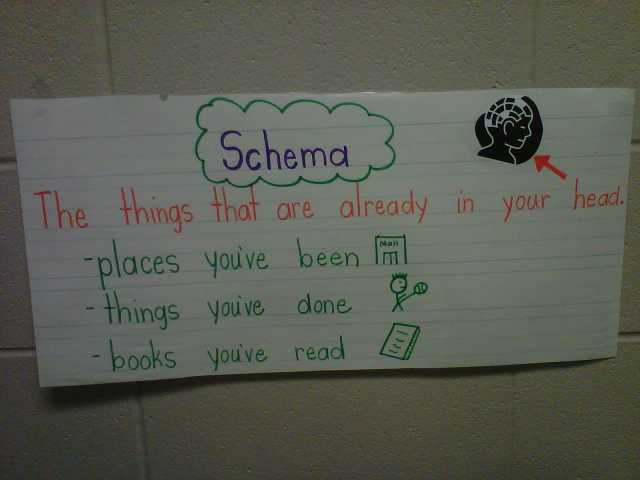 Schema
The things that are already in your head.
-places you've been
Mall
-things you've done
-books you've read